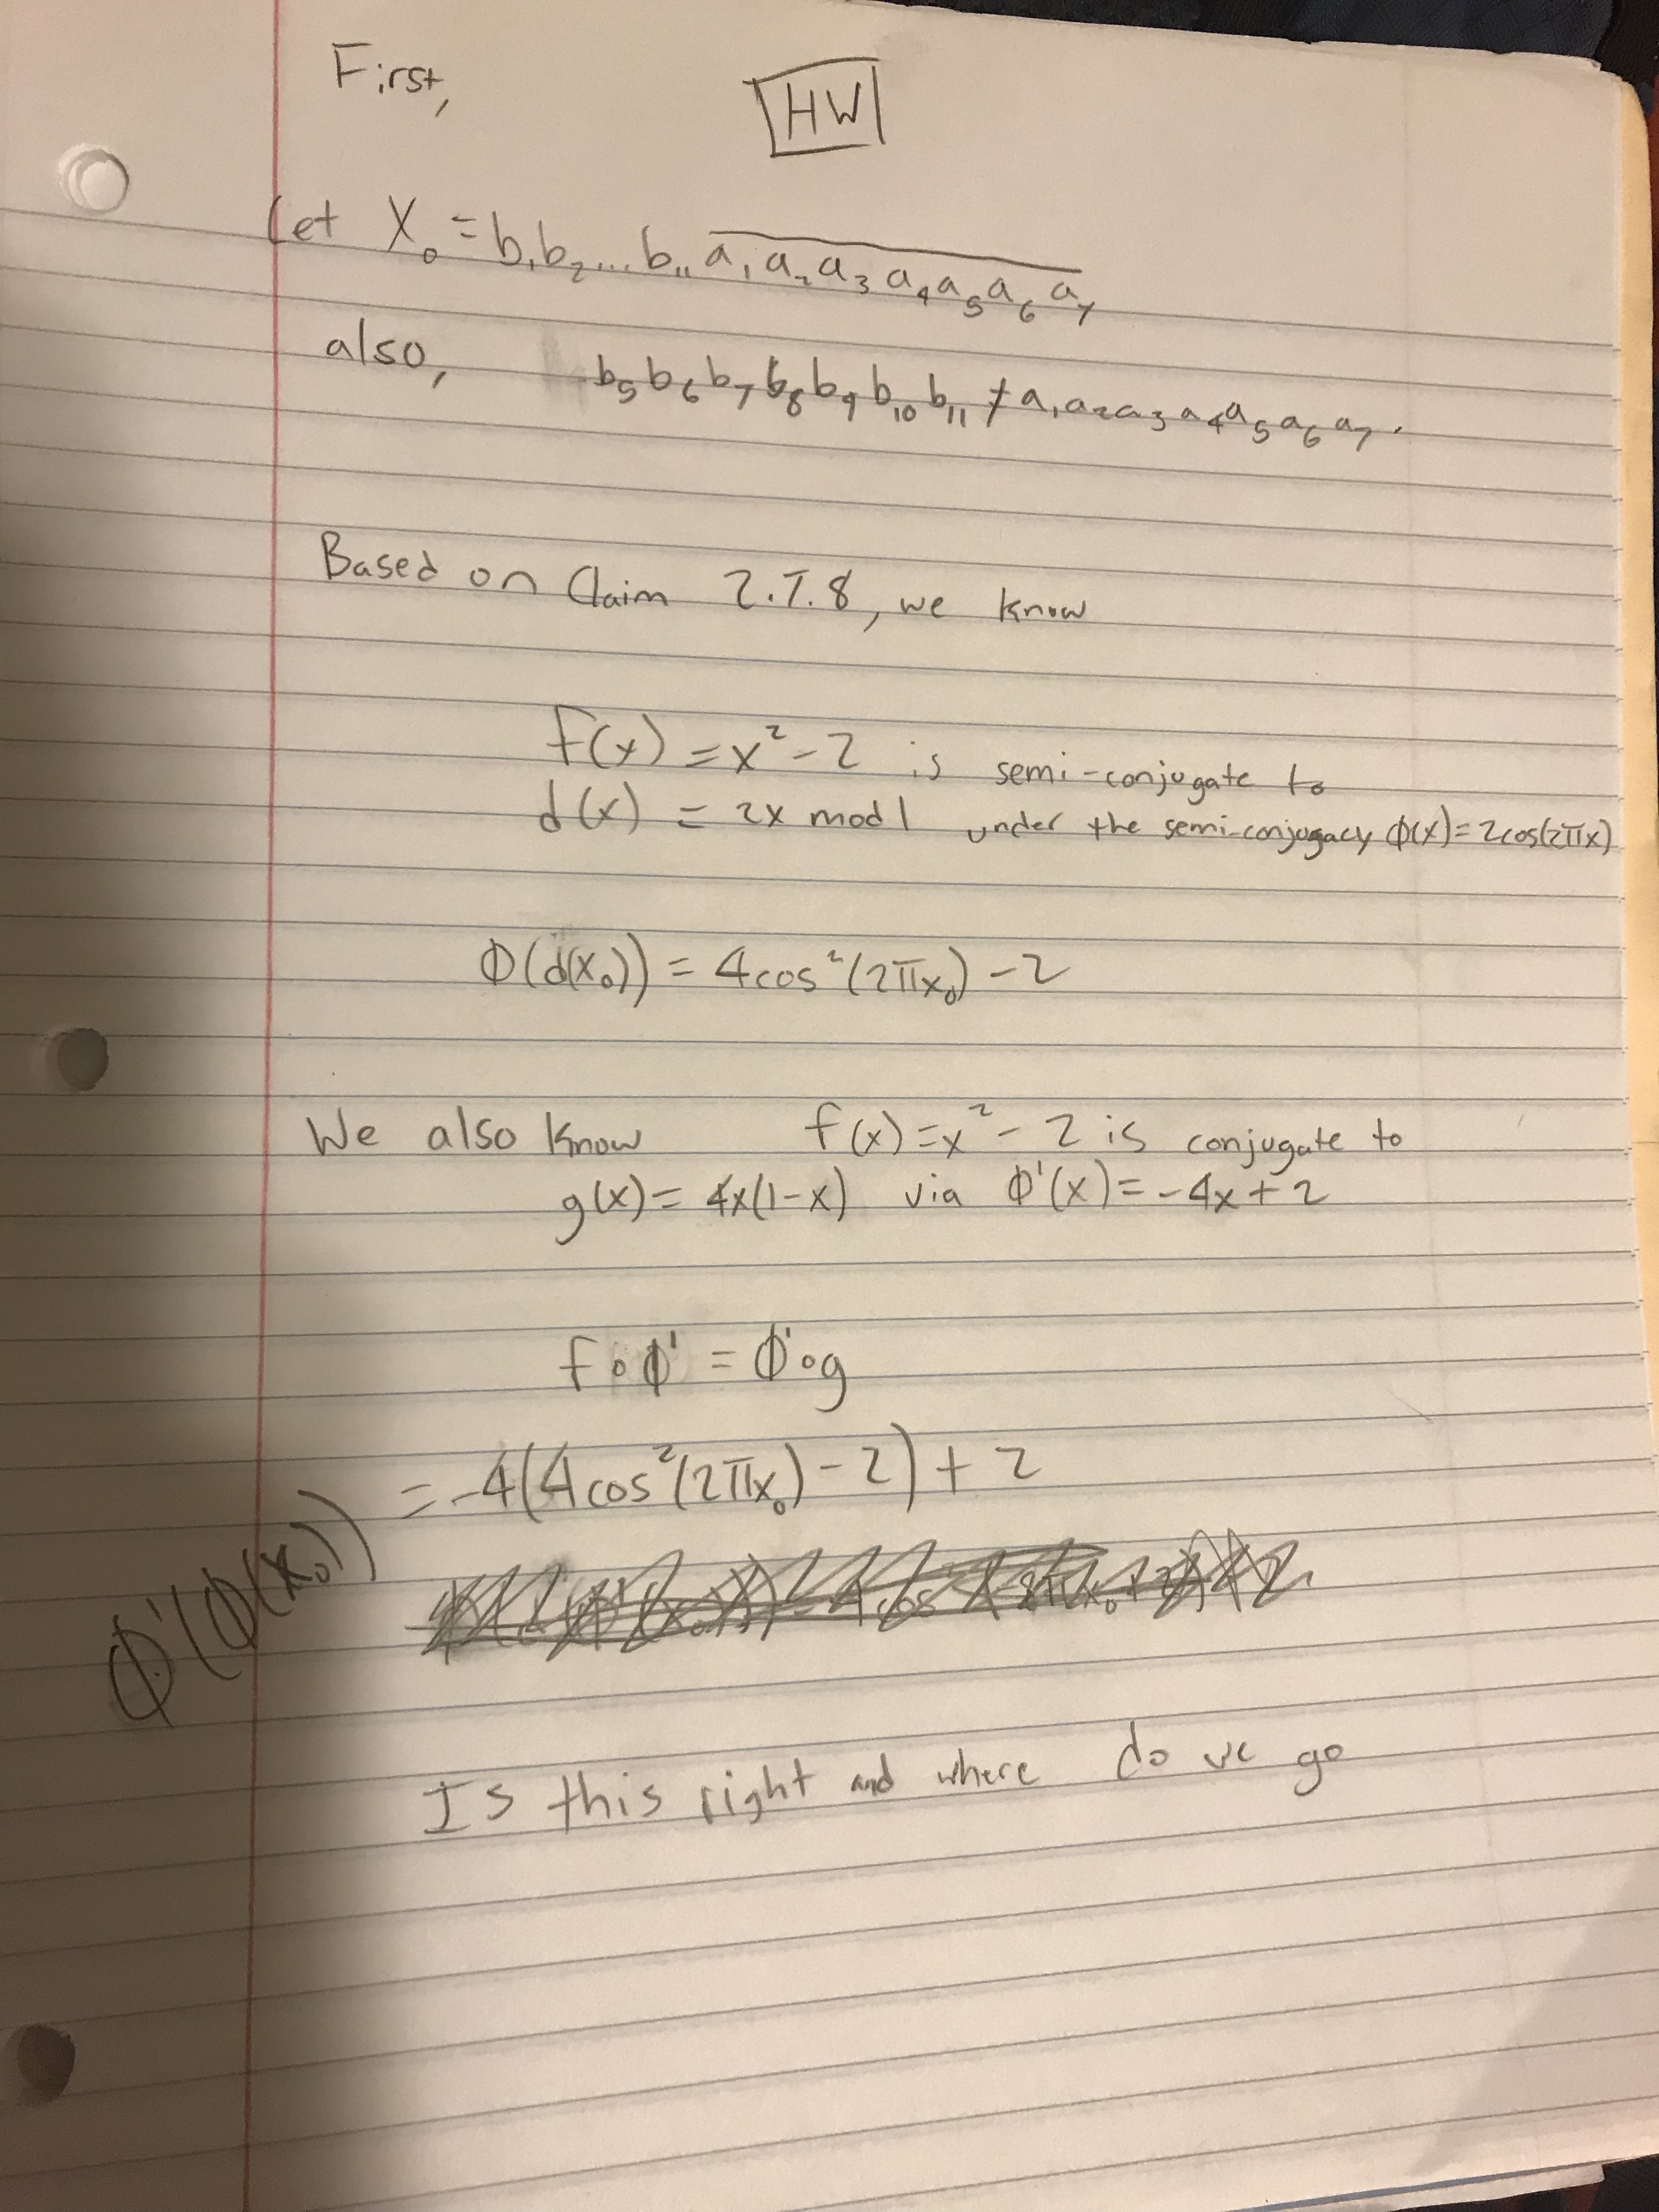 First,
HW
Let X₀ = b₁b₂...b₁₁ a̅₁a̅₂a̅₃a̅₄a̅₅a̅₆a̅₇
also, b₅b₆b₇b₈b₉b₁₀b₁₁ ≠ a₁a₂a₃a₄a₅a₆a₇.
Based on Claim 2.7.8, we know
f(x) = x² - 2 is semi-conjugate to
d(x) = 2x mod 1 under the semi-conjugacy ϕ(x) = 2cos(2πx)
ϕ(d(x₀)) = 4cos²(2πx₀) - 2
We also know f(x) = x² - 2 is conjugate to
g(x) = 4x(1-x) via ϕ'(x) = -4x + 2
f∘ϕ' = ϕ'∘g
ϕ'(ϕ(x₀)) = -4(4cos²(2πx₀) - 2) + 2
Is this right and where do we go